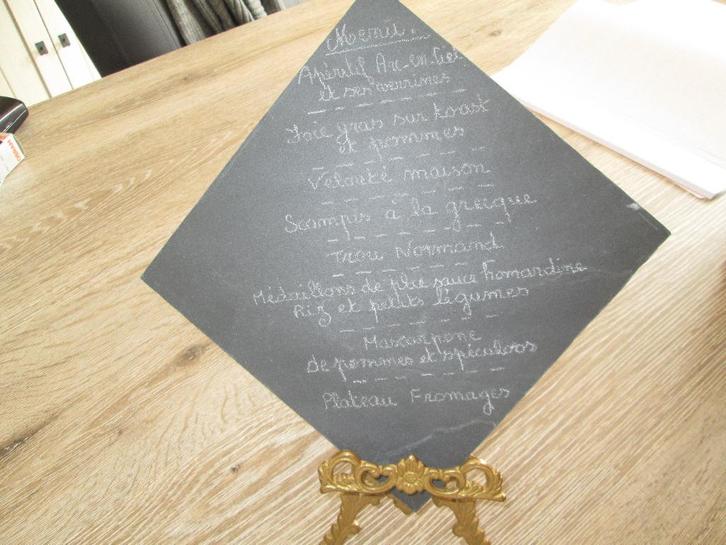 Menu.
Apéritif Arc-en-Ciel
et ses verrines
Foie gras sur toast
et pommes
Velouté maison
Scampis à la grecque
Trou Normand
Médaillons de plie sauce homardine
Riz et petits légumes
Mascarpone
de pommes et spéculoos
Plateau Fromages